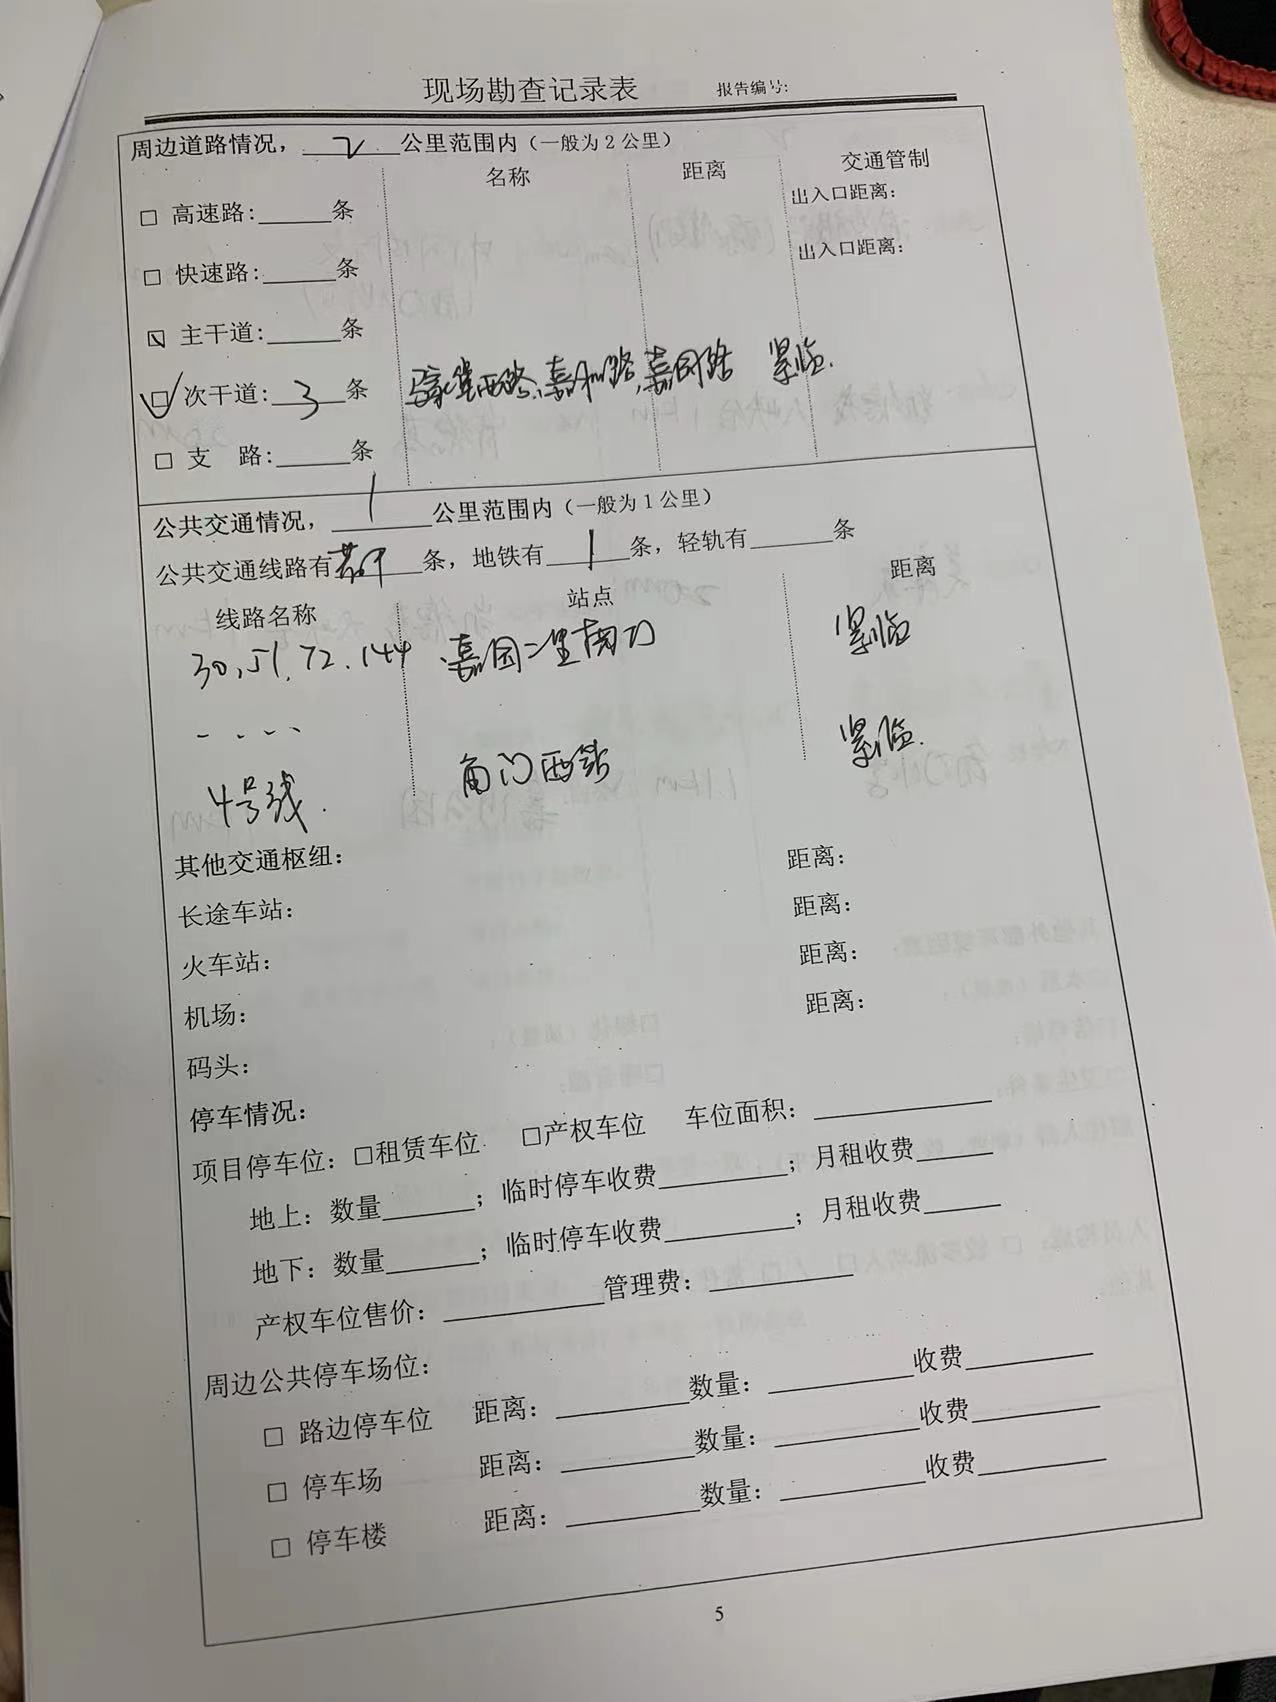 现场勘查记录表 报告编号:
周边道路情况，2公里范围内（一般为2公里）
名称 距离 交通管制
□ 高速路:______条 出入口距离:
□ 快速路:______条 出入口距离:
☑ 主干道:______条
☑ 次干道:3条 马家堡西路、嘉和路、嘉园路 紧临.
□ 支 路:______条
公共交通情况，1公里范围内（一般为1公里）
公共交通线路有若干条，地铁有1条，轻轨有______条
线路名称 站点 距离
30、51、72、144 嘉园二里南 紧临
....
4号线. 角门西站 紧临.
其他交通枢纽:
长途车站: 距离:
火车站: 距离:
机场: 距离:
码头: 距离:
停车情况:
项目停车位: □租赁车位 □产权车位 车位面积:__________
地上: 数量______; 临时停车收费________; 月租收费_____
地下: 数量______; 临时停车收费________; 月租收费_____
产权车位售价:__________管理费:__________
周边公共停车场位:
□ 路边停车位 距离:________数量:_________收费________
□ 停车场 距离:________数量:_________收费________
□ 停车楼 距离:________数量:_________收费________
5